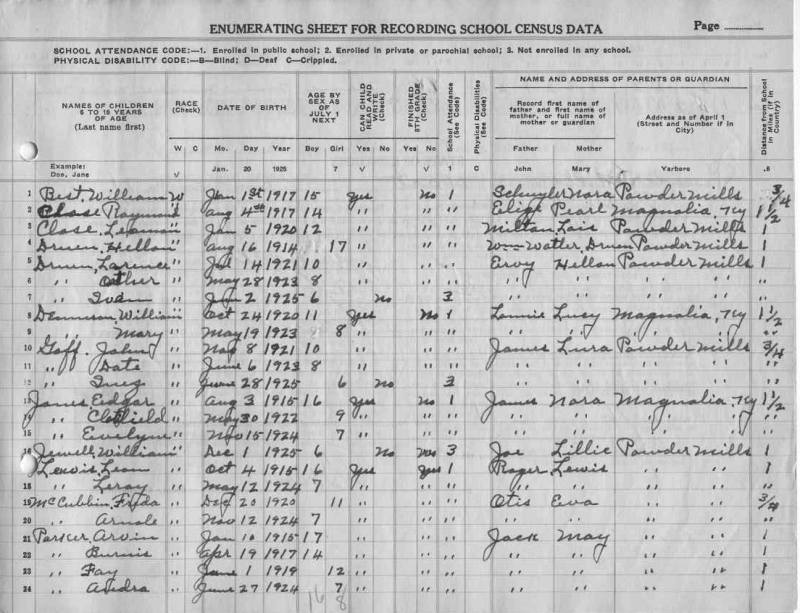 ENUMERATING SHEET FOR RECORDING SCHOOL CENSUS DATA Page
SCHOOL ATTENDANCE CODE:—1. Enrolled in public school; 2. Enrolled in private or parochial school; 3. Not enrolled in any school.
PHYSICAL DISABILITY CODE:—B—Blind; D—Deaf C—Crippled.
NAMES OF CHILDREN 6 TO 18 YEARS OF AGE (Last name first)
RACE (Check)
W C
DATE OF BIRTH
Mo. Day Year
AGE BY SEX AS OF JULY 1 NEXT
Boy Girl
CAN CHILD READ AND WRITE (Check)
Yes No
FINISHED 8TH GRADE (Check)
Yes No
School Attendance (See Code)
Physical Disabilities (See Code)
NAME AND ADDRESS OF PARENTS OR GUARDIAN
Record first name of father and first name of mother, or full name of mother or guardian
Father Mother
Address as of April 1 (Street and Number if in City)
Distance from School in Miles (If in Country)
Example: Doe, Jane V Jan. 20 1925 7 V V 1 C John Mary Yarboro .5
1 Best, William W Jan 1st 1917 15 yes no 1 Schuyler Nora Powder Mills 3/4
2 Close Raymond " Aug 4th 1917 14 " " " Elige Pearl Magnolia, Ky 1 1/2
3 Close, Leaman " Jan 5 1920 12 " " " Milton, Lois Powder Mills 1
4 Druen, Hellon " Aug 16 1914 17 " " " Walter, Druen Powder Mills 1
5 Druen, Larence " Jul 14 1921 10 " " " Ervy Hellon Powder Mills 1
6 " Other " May 28 1923 8 " " " " " " " 1
7 " Ivan " June 2 1925 6 no 3 " " " "
8 Dennison, William " Oct 24 1920 11 yes no 1 Lonnie Lucy Magnolia, Ky 1 1/2
9 " Mary " May 19 1923 8 " " " " " " "
10 Goff, John " Nov 8 1921 10 " " " James Lura Powder Mills 3/4
11 " Date " June 6 1923 8 " " " " " " "
12 " Inez " June 28 1925 6 no 3 " " " "
13 James Edgar " Aug 3 1915 16 yes no 1 James Nora Magnolia, Ky 1 1/2
14 " " May 30 1922 9 " " " " " " "
15 " Evelyne " Nov 15 1924 7 " " " " " " "
16 Jewell, William " Dec 1 1925 6 no no 3 Joe Lillie Powder Mills 1
17 Lewis, Leon " Oct 4 1915 16 yes yes 1 Roger Lewis " " 1
18 " Leroy " May 12 1924 7 " " " " " " " 1
19 McCubbin, Freda " Dec 20 1920 11 " " " Otis Eva " " 3/4
20 " " Nov 12 1924 7 " " " " " " "
21 Parker, Arvin " Jan 10 1915 17 " " " Jack May " " 1
22 " Burnis " Apr 19 1917 14 " " " " " " " 1
23 " Fay " June 1 1919 12 " " " " " " " 1
24 " " June 27 1924 7 " " " " " " " 1
16 8